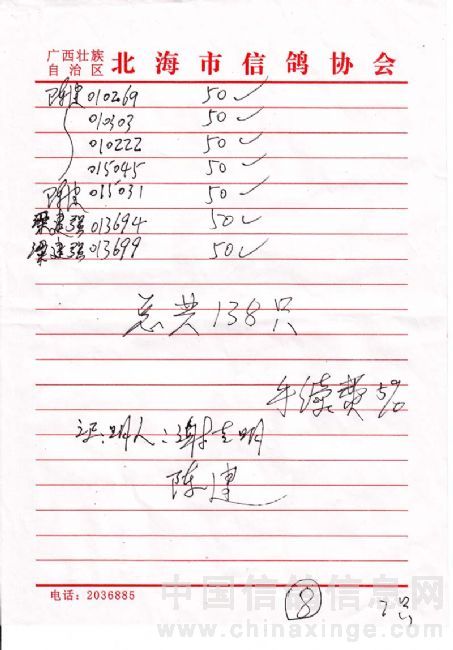 广西壮族
自治区 北海市信鸽协会
陈建 010269 50✓
010303 50✓
010222 50✓
015045 50✓
陈建 015031 50✓
梁建强 013694 50✓
梁建强 013699 50✓
总共138只
手续费5%
证明人：谢志明
陈建
电话：2036885
中国信鸽信息网
www.chinaxinge.com
⑧ 7号